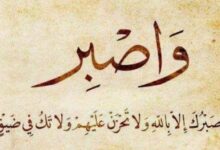 وَاصْبِر
صَبْرُكَ إِلاَّ بِاللهِ وَلاَ تَحْزَنْ عَلَيْهِمْ وَلاَ تَكُ فِي ضَيْقٍ